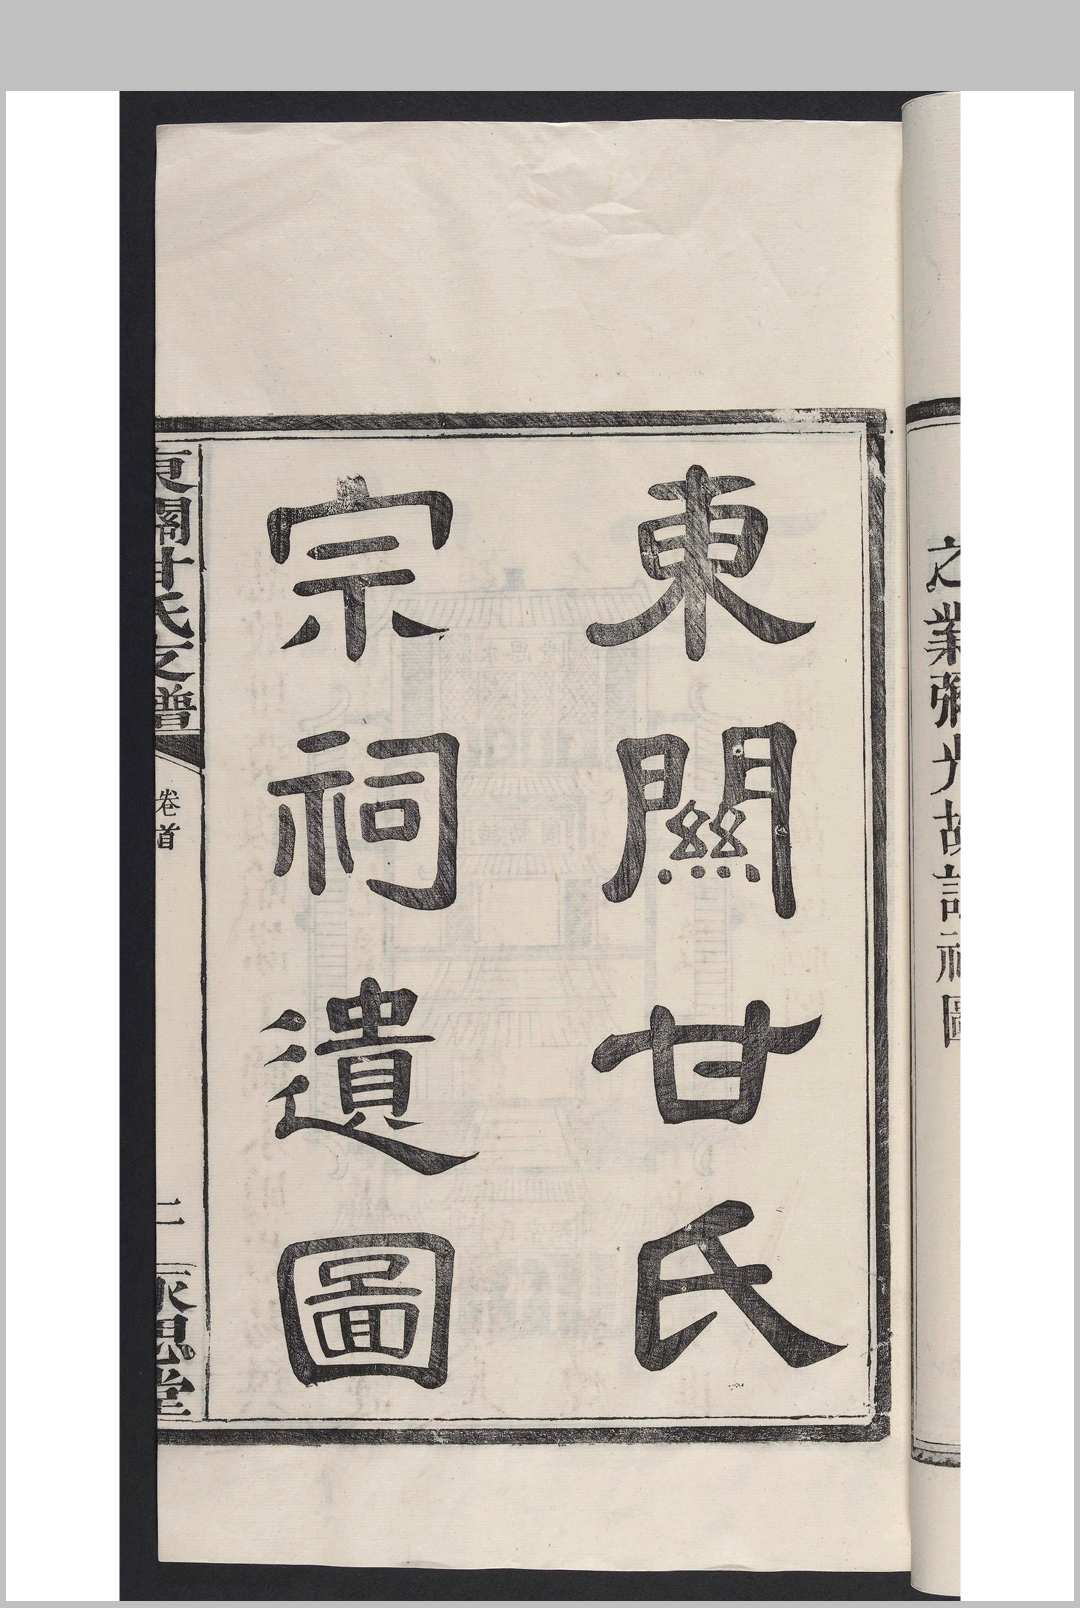 之業彌光
東關甘氏
宗祠遺圖
東關甘氏支譜
卷首
二
永思堂